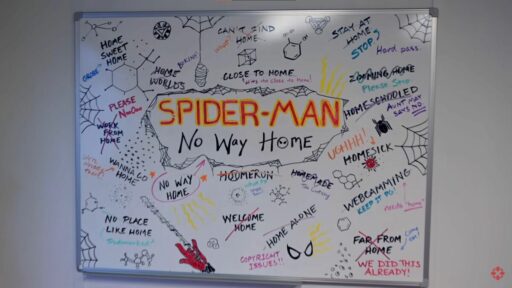 HOME
SWEET
HOME
CAN'T FIND
HOME
STAY AT
HOME
STOP!
Hard pass.
HOME
WORLDS
CLOSE TO HOME
ZOOMING HOME
Please Stop
HOMESCHOOLED
AUNT MAY
SAYS NO
PLEASE
WORK
FROM
HOME
SPIDER-MAN
NO WAY HOME
UGHHH!
HOMESICK
WANNA GO
HOME
NO WAY
HOME
HOMERUN
HOMEMADE
WEBCAMMING
KEEP IT PG!
needs "home"
NO PLACE
LIKE HOME
Trademarked!
WELCOME
HOME
HOME ALONE
COPYRIGHT
ISSUES!!
FAR FROM
HOME
WE DID THIS
ALREADY!